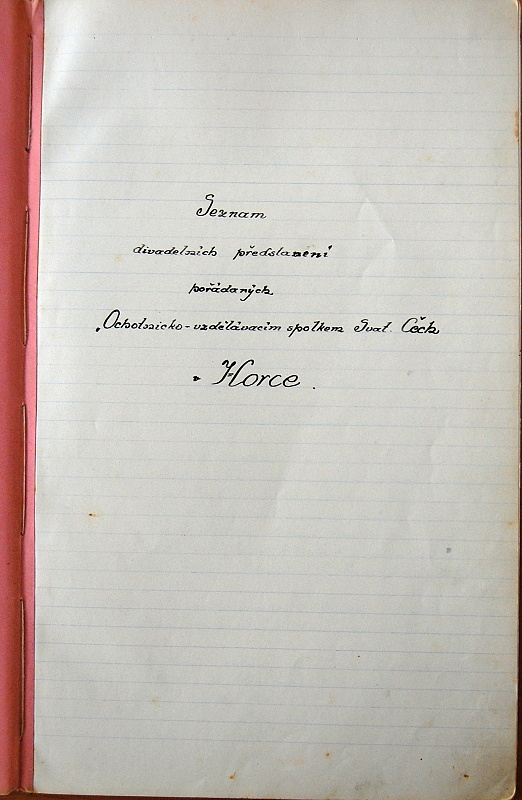 Seznam
divadelních představení
pořádaných
„Ochotnicko-vzdělávacím spolkem Svat. Čech
v Horce.